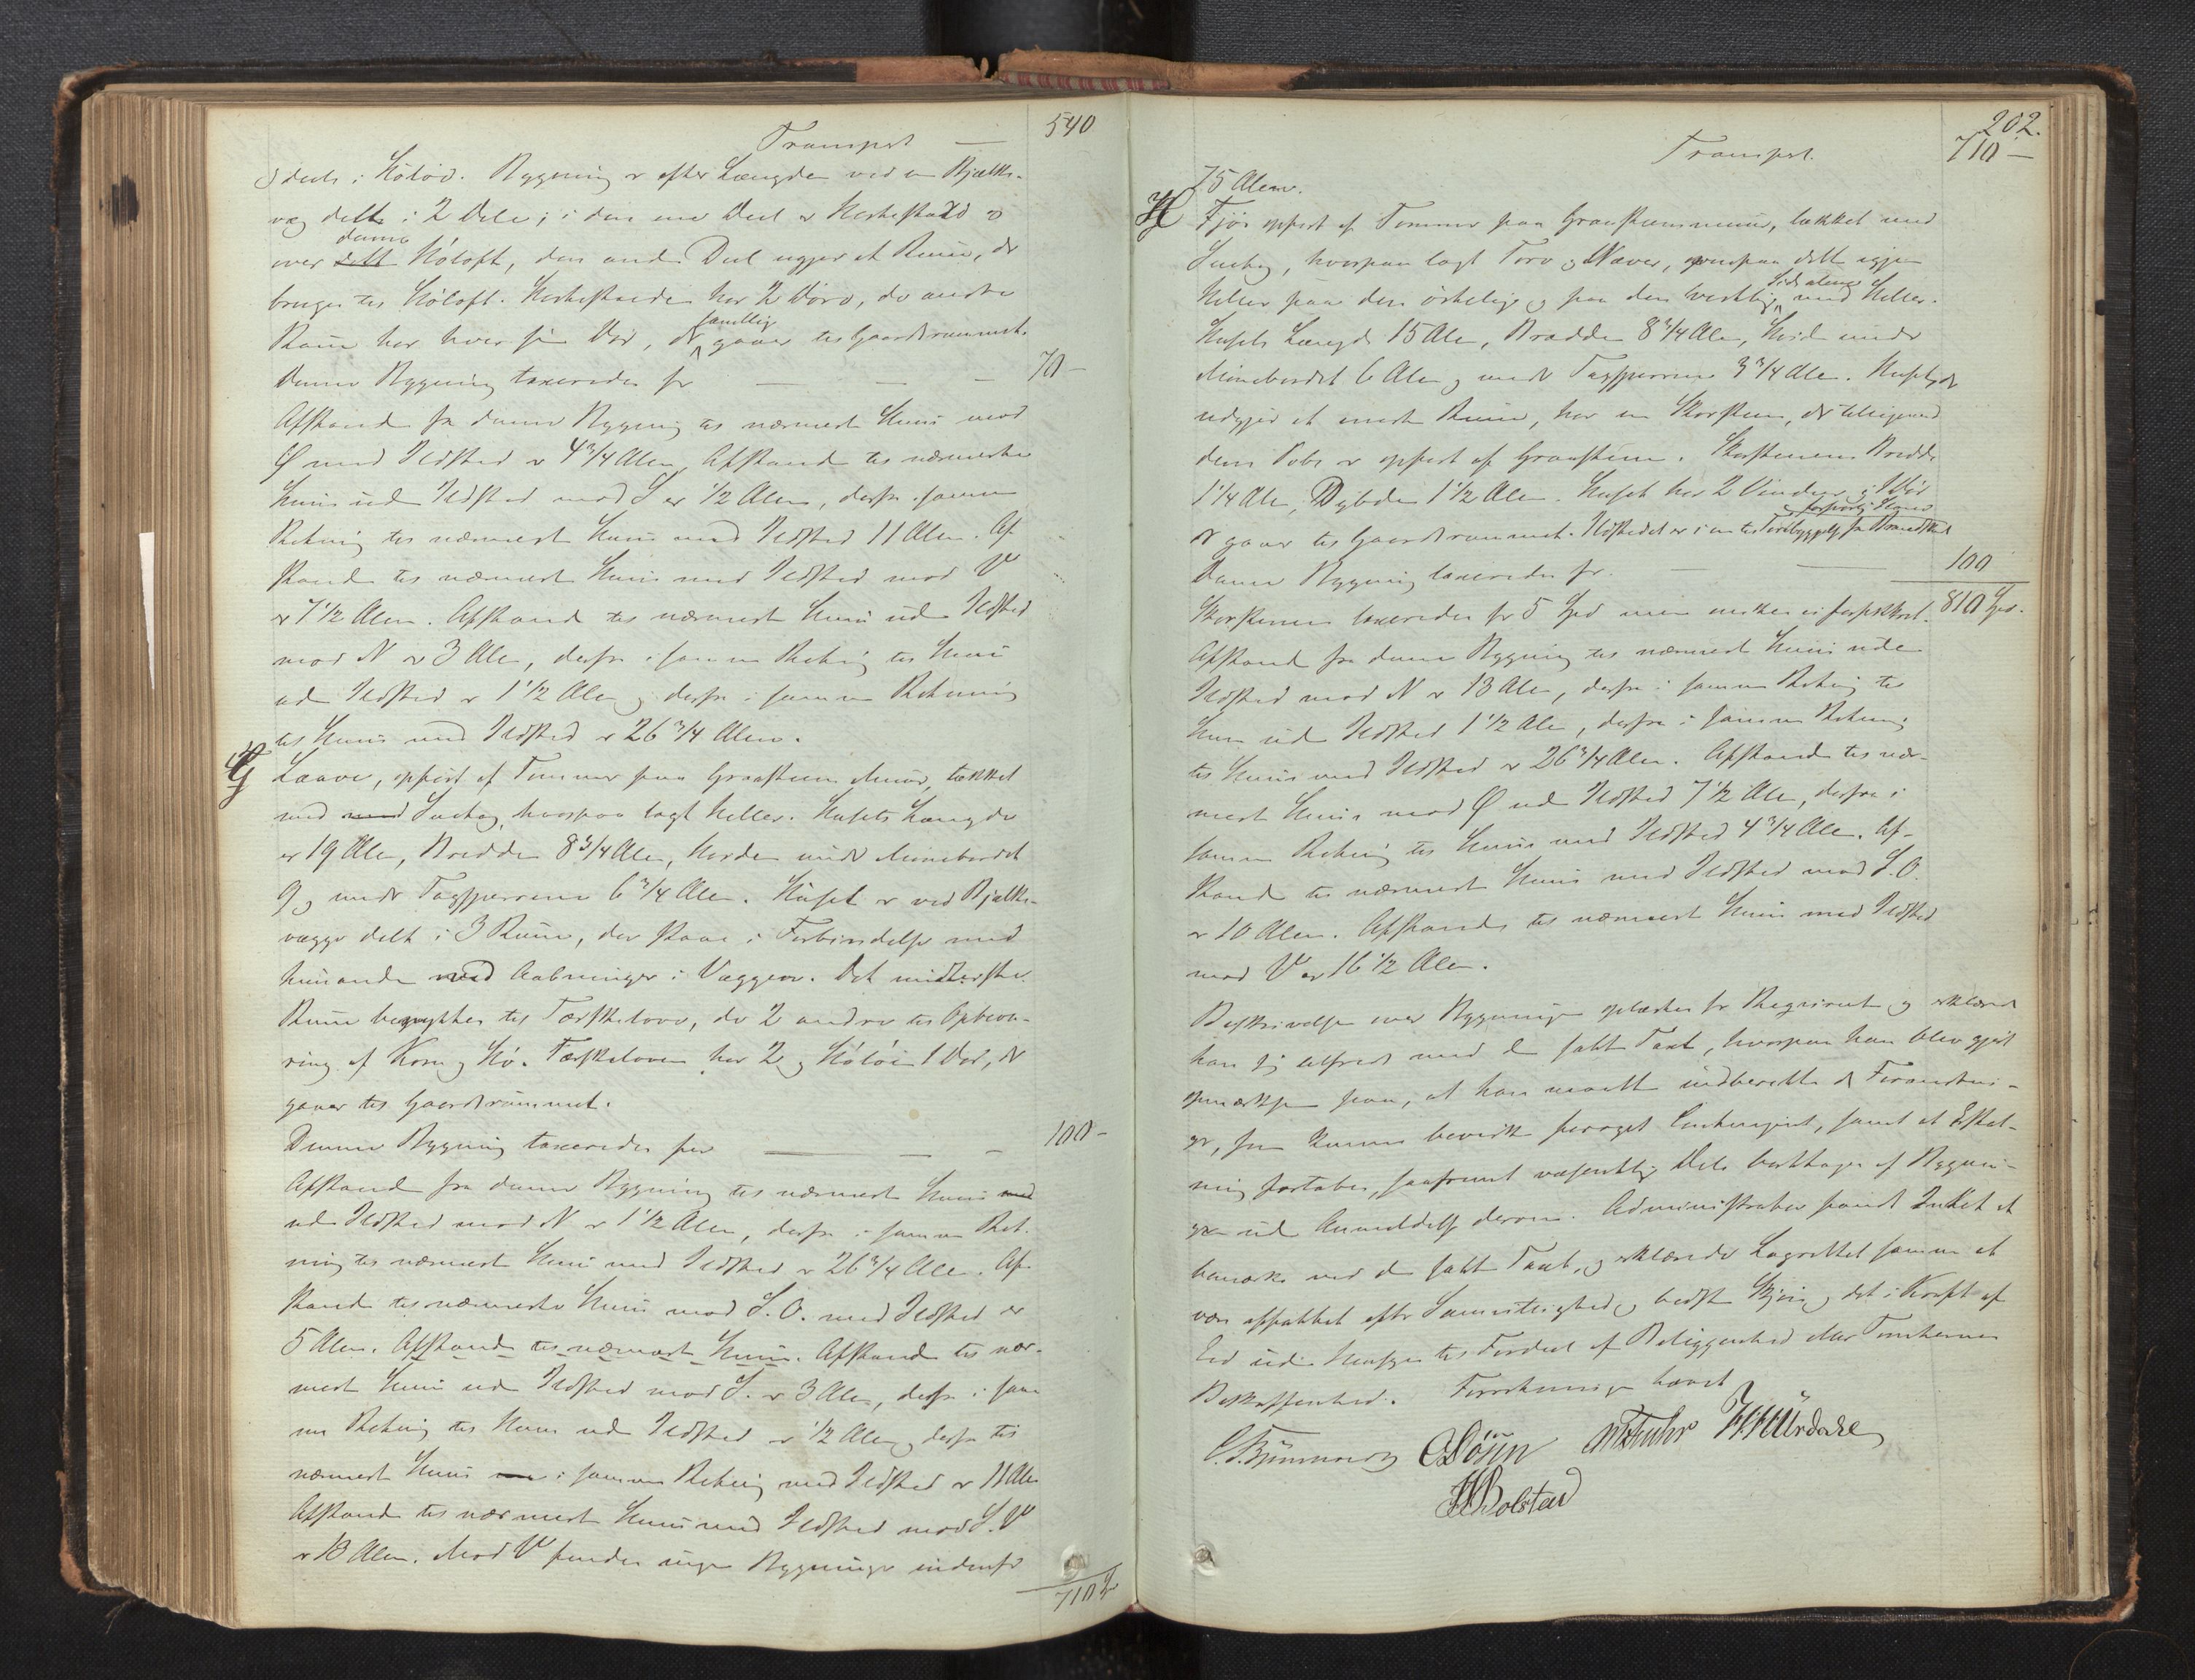 Transport — 540
deels i Hölov. Bygning er efter Længden ved en Bjælke-
væg delt i 2 Dele; i den ene Deel er Hestestald og
over denne Höloft, den anden Deel udgjør et Rum, der
bruges til Höloft. Hestestalden har 2 Döre, de andre
Rum har hver sin Dör, der samtlige gaaer til Gaardsrummet.
Denne Bygning taxeredes for — — — 70 —
Afstand fra denne Bygning til nærmeste Huus mod
Ø med Ildsted er 4 3/4 Alen, Afstand til nærmeste
Huus uden Ildsted mod S er 1/2 Alen, derfra i samme
Retning til nærmeste Huus med Ildsted 11 Alen. Af-
stand til nærmeste Huus med Ildsted mod V
er 7 1/2 Alen. Afstand til nærmeste Huus uden Ildsted
mod N er 3 Alen, derfra i samme Retning til Huus
uden Ildsted er 1 1/2 Alen og derfra i samme Retning
til Huus med Ildsted er 26 3/4 Alen.
G Laave, opført af Tømmer paa Graasteens Muur, tækket
med med Sutag, hvorpaa lagt Heller. Husets Længde
er 19 Alen, Bredden 8 3/4 Alen, Høiden under Mønebordet
9 og under Tagsperrerne 6 3/4 Alen. Huset er ved Bjælke-
vægge delt i 3 Rum, der staae i Forbindelse med
hinanden ved Aabninger i Væggen. Det midterste
Rum benyttes til Tærskelove, de 2 andre til Opbeva-
ring af Korn og Hö. Tærskeloven har 2 og Höloi 1 Dør, der
gaaer til Gaardsrummet.
Denne Bygning taxeredes for — — — 100 —
Afstand fra denne Bygning til nærmeste Huus med
uden Ildsted mod N er 1 1/2 Alen, derfra i samme Ret-
ning til nærmeste Huus med Ildsted er 26 3/4 Alen. Af-
stand til nærmeste Huus mod S.O. med Ildsted er
5 Alen. Afstand til nærmeste Huus. Afstand til nær-
meste Huus uden Ildsted mod S. er 3 Alen, derfra i sam-
me Retning til Huus uden Ildsted er 1/2 Alen og derfra til
nærmeste Huus i samme Retning med Ildsted er 11 Alen
Afstand til nærmeste Huus med Ildsted mod S.V
er 13 Alen. Mod V findes ingen Bygninger indenfor
710
202.
Transport. 710 —
75 Alen.
H Fjös opført af Tømmer paa Graasteensmuur, tækket med
Sutag, hvorpaa lagt Torv og Næver, ovenpaa dette igjen
Heller paa den østlige og paa den vestlige Side alene med Heller.
Husets Længde 15 Alen, Bredde 8 3/4 Alen, Høide under
Mønebordet 6 Alen og under Tagsperrerne 3 3/4 Alen. Huset, der
udgjør et eneste Rum, har en Skorsteen, der tilligemed
dens Pibe er opført af Graasteen. Skorstenens Bredde
1 1/4 Alen, Dybden 1 1/2 Alen. Huset har 2 Vinduer og 1 Dør
der gaaer til Gaardsrummet. Ildstedet er i en til Forebyggelse for Ildebrand forsvarlig Stand
Denne Bygning taxeredes for — — 100
Skorstenen taxeredes for 5 Spd men ønskes ei forsikkret. 810 Spd.
Afstand fra denne Bygning til nærmeste Huus uden
Ildsted mod N er 13 Alen, derfra i samme Retning til
Huus uden Ildsted 1 1/2 Alen, derfra i samme Retning
til Huus med Ildsted er 26 3/4 Alen. Afstand til nær-
meste Huus mod Ø uden Ildsted 7 1/2 Alen, derfra i
samme Retning til Huus med Ildsted 4 3/4 Alen. Af-
stand til nærmeste Huus med Ildsted mod S.O.
er 10 Alen. Afstand til nærmeste Huus med Ildsted
mod V er 16 1/2 Alen.
Beskrivelsen over Bygningen oplæstes for Reqvirenten og erklærede
han sig tilfreds med den satte Taxt, hvorpaa han blev gjort
opmærksom paa, at han maatte indberette de Forandrin-
ger, som kunne bevirke forøget samt at Erstat-
ning fortabes, saafremt væsentlige Dele borttages af Bygnin-
gen uden Anmeldelse derom. Administrator fandt Intet at
bemærke ved den satte Taxt, og erklærede Lagrettet samme at
være affattet efter Samvittighed og bedste Skjøn og det i Kraft af
Eed uden Hensyn til Fordeel af Beliggenhed eller Tomternes
Beskaffenhed. Forretningen hævet
C. Dösen H H Urdahl
H Bolstad